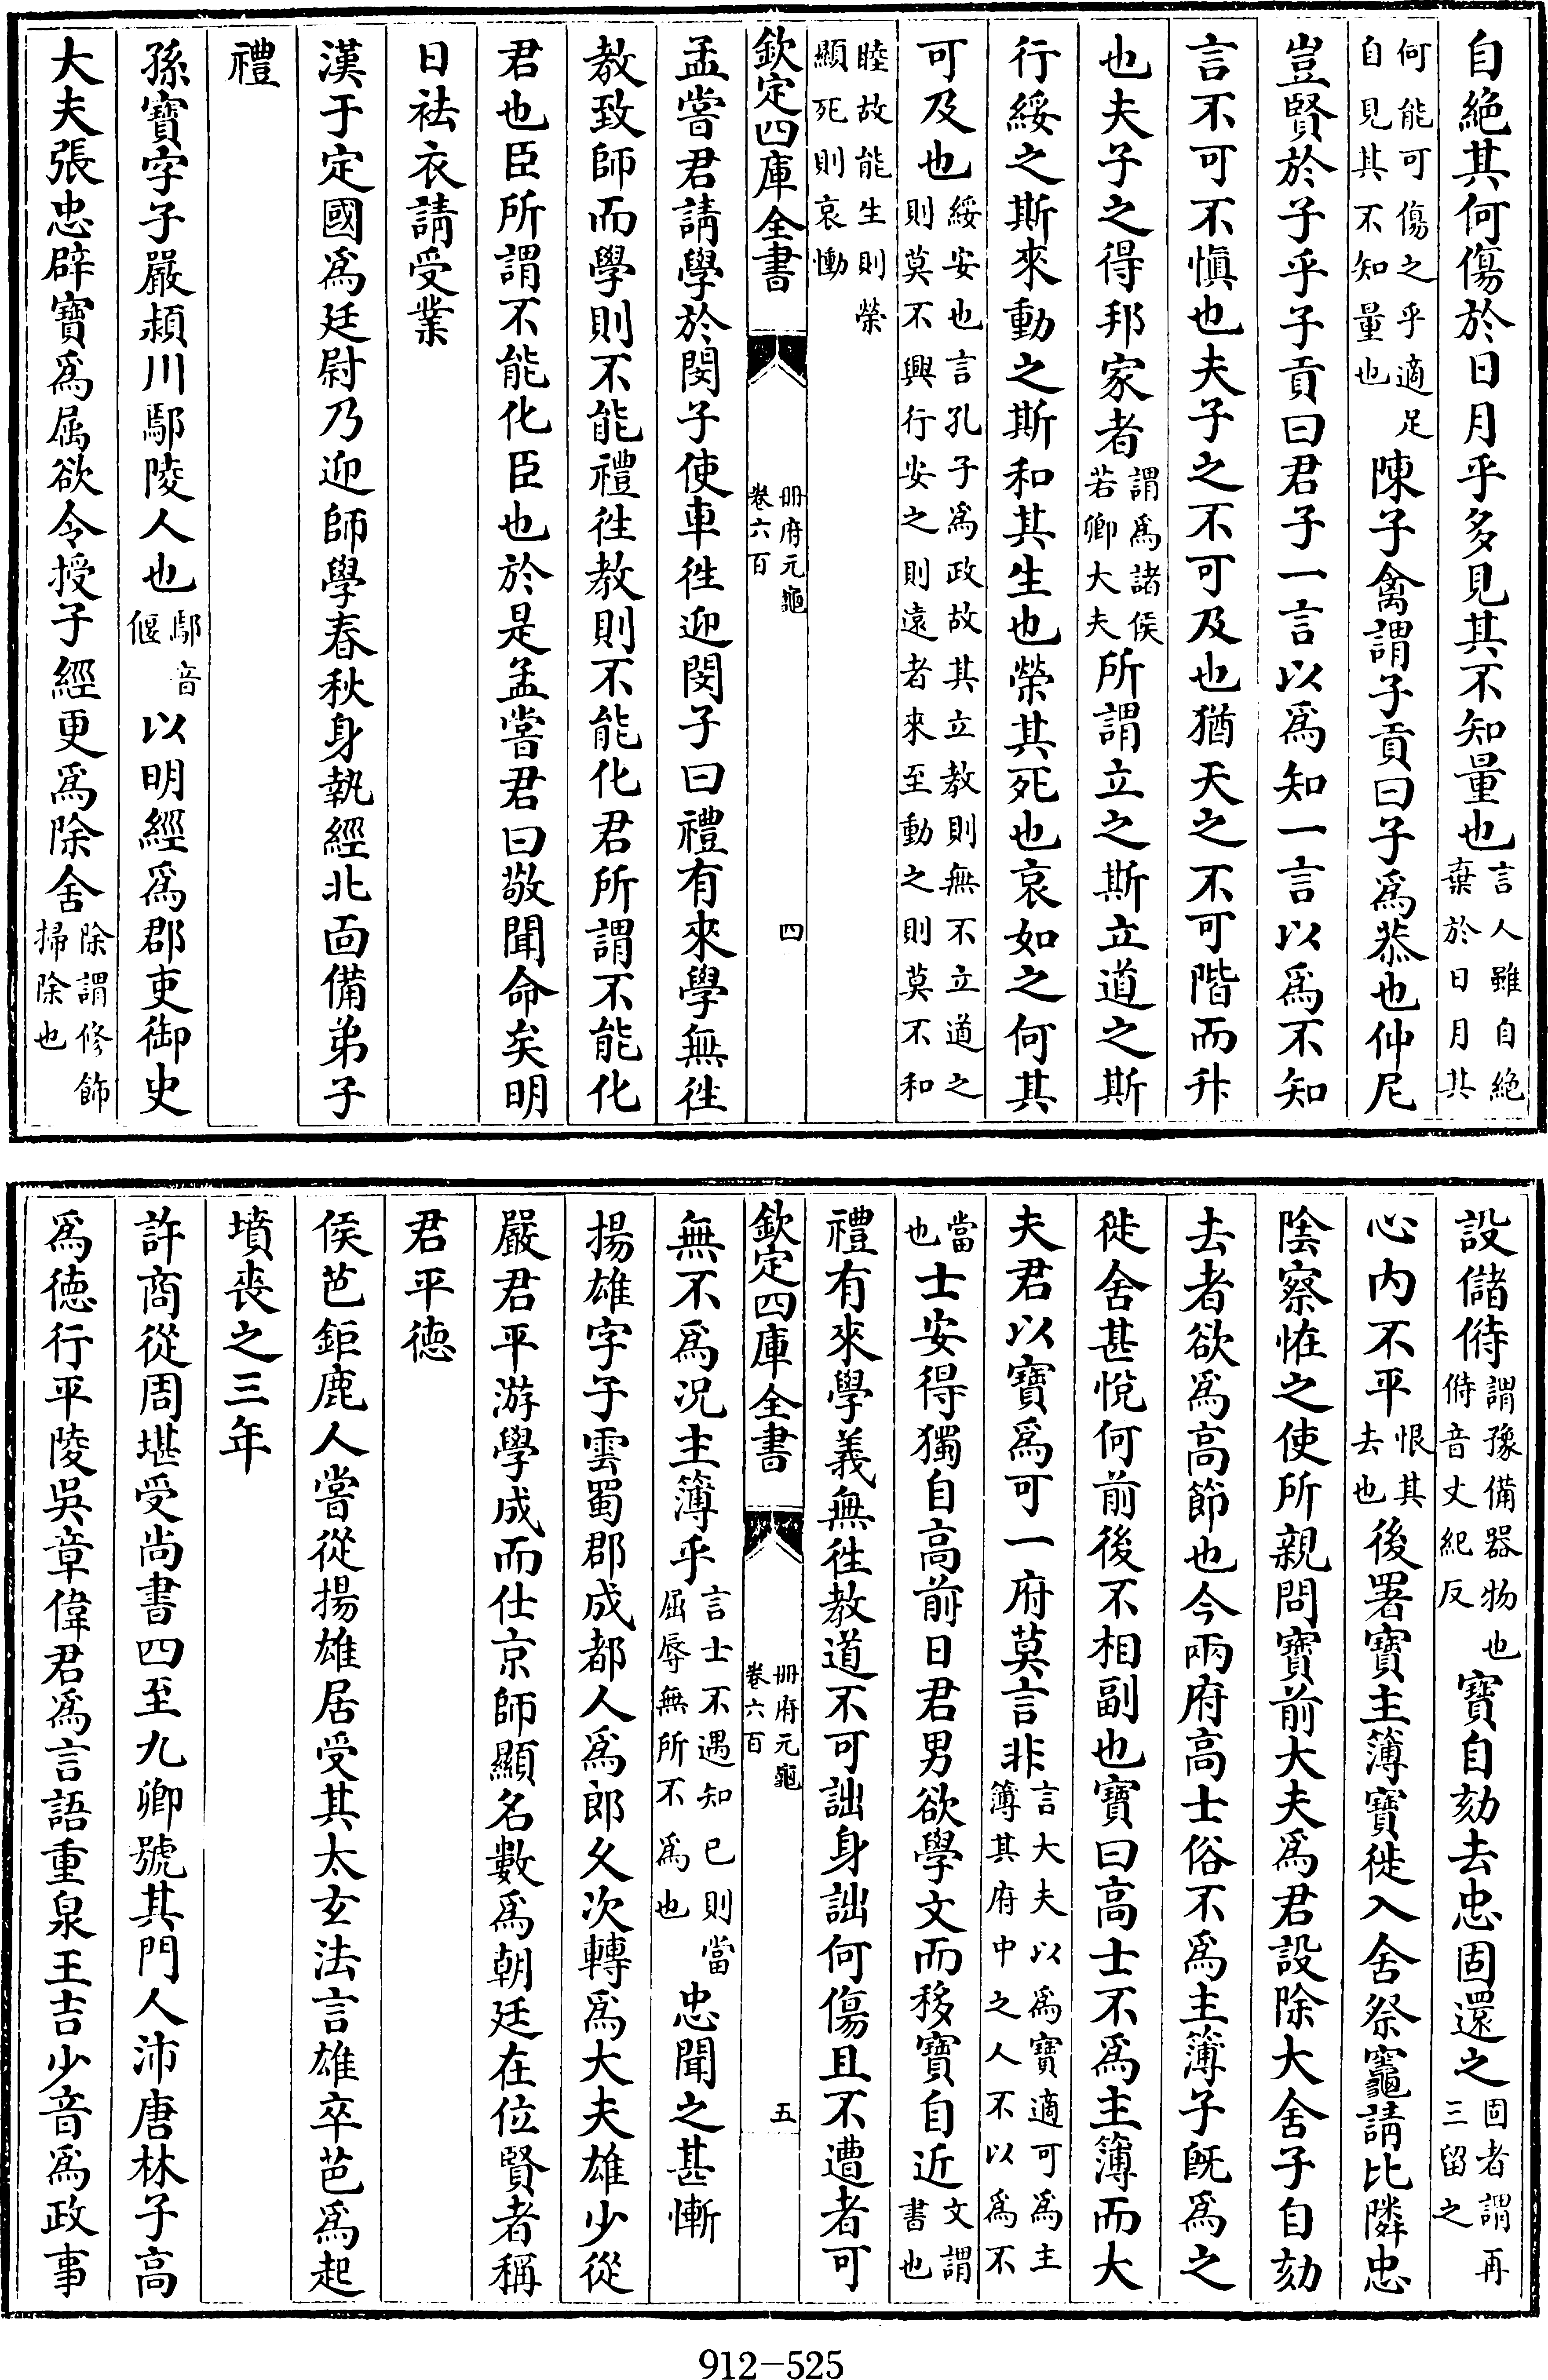 自絶其何傷於日月乎多見其不知量也言人雖自絶棄於日月其
何能可傷之乎適足自見其不知量也陳子禽謂子貢曰子為恭也仲尼
豈賢於子乎子貢曰君子一言以為知一言以為不知
言不可不愼也夫子之不可及也猶天之不可階而升
也夫子之得邦家者謂為諸侯若卿大夫所謂立之斯立道之斯
行綏之斯來動之斯和其生也榮其死也哀如之何其
可及也綏安也言孔子為政故其立教則無不立道之則莫不興行安之則遠者來至動之則莫不和
睦故能生則榮顯死則哀慟
欽定四庫全書
冊府元龜
卷六百
四
孟嘗君請學於閔子使車徃迎閔子曰禮有來學無徃
教致師而學則不能禮徃教則不能化君所謂不能化
君也臣所謂不能化臣也於是孟嘗君曰敬聞命矣明
日袪衣請受業
漢于定國為廷尉乃迎師學春秋身執經北面備弟子
禮
孫寶字子嚴潁川鄢陵人也鄢音偃以明經為郡吏御史
大夫張忠辟寶為屬欲令授子經更為除舍除謂修飾掃除也
設儲偫謂豫備器物也偫音丈紀反寶自劾去忠固還之固者謂再三留之
心内不平恨其去也後署寶主簿寶徙入舍祭竈請比隣忠
陰察怪之使所親問寶前大夫為君設除大舍子自劾
去者欲為高節也今兩府高士俗不為主簿子旣為之
徙舍甚悅何前後不相副也寶曰高士不為主簿而大
夫君以寶為可一府莫言非言大夫以為寶適可為主簿其府中之人不以為不
當也士安得獨自高前日君男欲學文而移寶自近文謂書也
禮有來學義無徃教道不可詘身詘何傷且不遭者可
欽定四庫全書
冊府元龜
卷六百
五
無不為況主簿乎言士不遇知已則當屈辱無所不為也忠聞之甚慚
揚雄字子雲蜀郡成都人為郎乆次轉為大夫雄少從
嚴君平游學成而仕京師顯名數為朝廷在位賢者稱
君平德
侯芭鉅鹿人嘗從揚雄居受其太玄法言雄卒芭為起
墳喪之三年
許商從周堪受尚書四至九卿號其門人沛唐林子高
為德行平陵吳章偉君為言語重泉王吉少音為政事
912-525